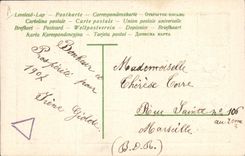 Levelező-Lap — Postkarte — Correspondenzkarte — Открытое письмо
Cartolina postale — Carte postale — Union postale universelle
Brefkort — Postcard — Weltpostverein — Dopisnice
Karta Korespondencyjna — Tarjeta postal —
Bonheur et
Prospérité pour
1907
Irène
Mademoiselle
Thérèse
Rue Sainte nº 106
au 2ème
Marseille
(B.D.R.)